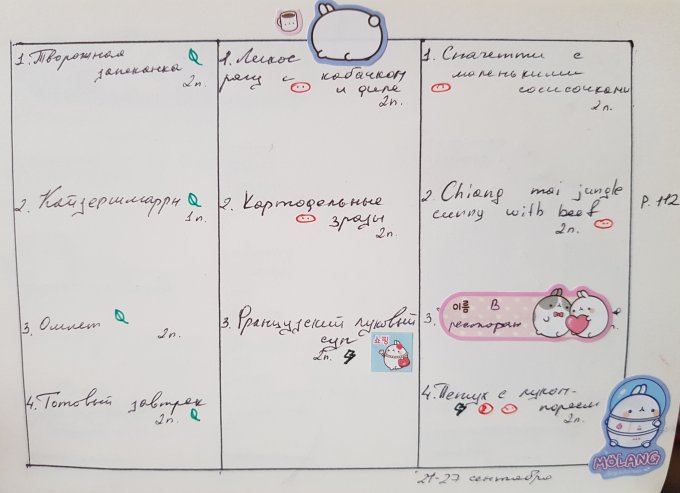 1. Творожная
запеканка
2п.
2. Кайзершмаррн
1п.
3. Омлет
2п.
4. Готовый завтрак
2п.
1. Легкое
рагу с кабачком
и филе
2п.
2. Картофельные
зразы
2п.
3. Французский луковый
суп
2п.
쇼핑
1. Спагетти с
маленькими
сосисочками
2п.
2. Chiang mai jungle
curry with beef
2п.
P. 112
3.
이름 В
ресторан
4. Петух с луком-
пореем
2п.
MOLANG
21-27 сентября